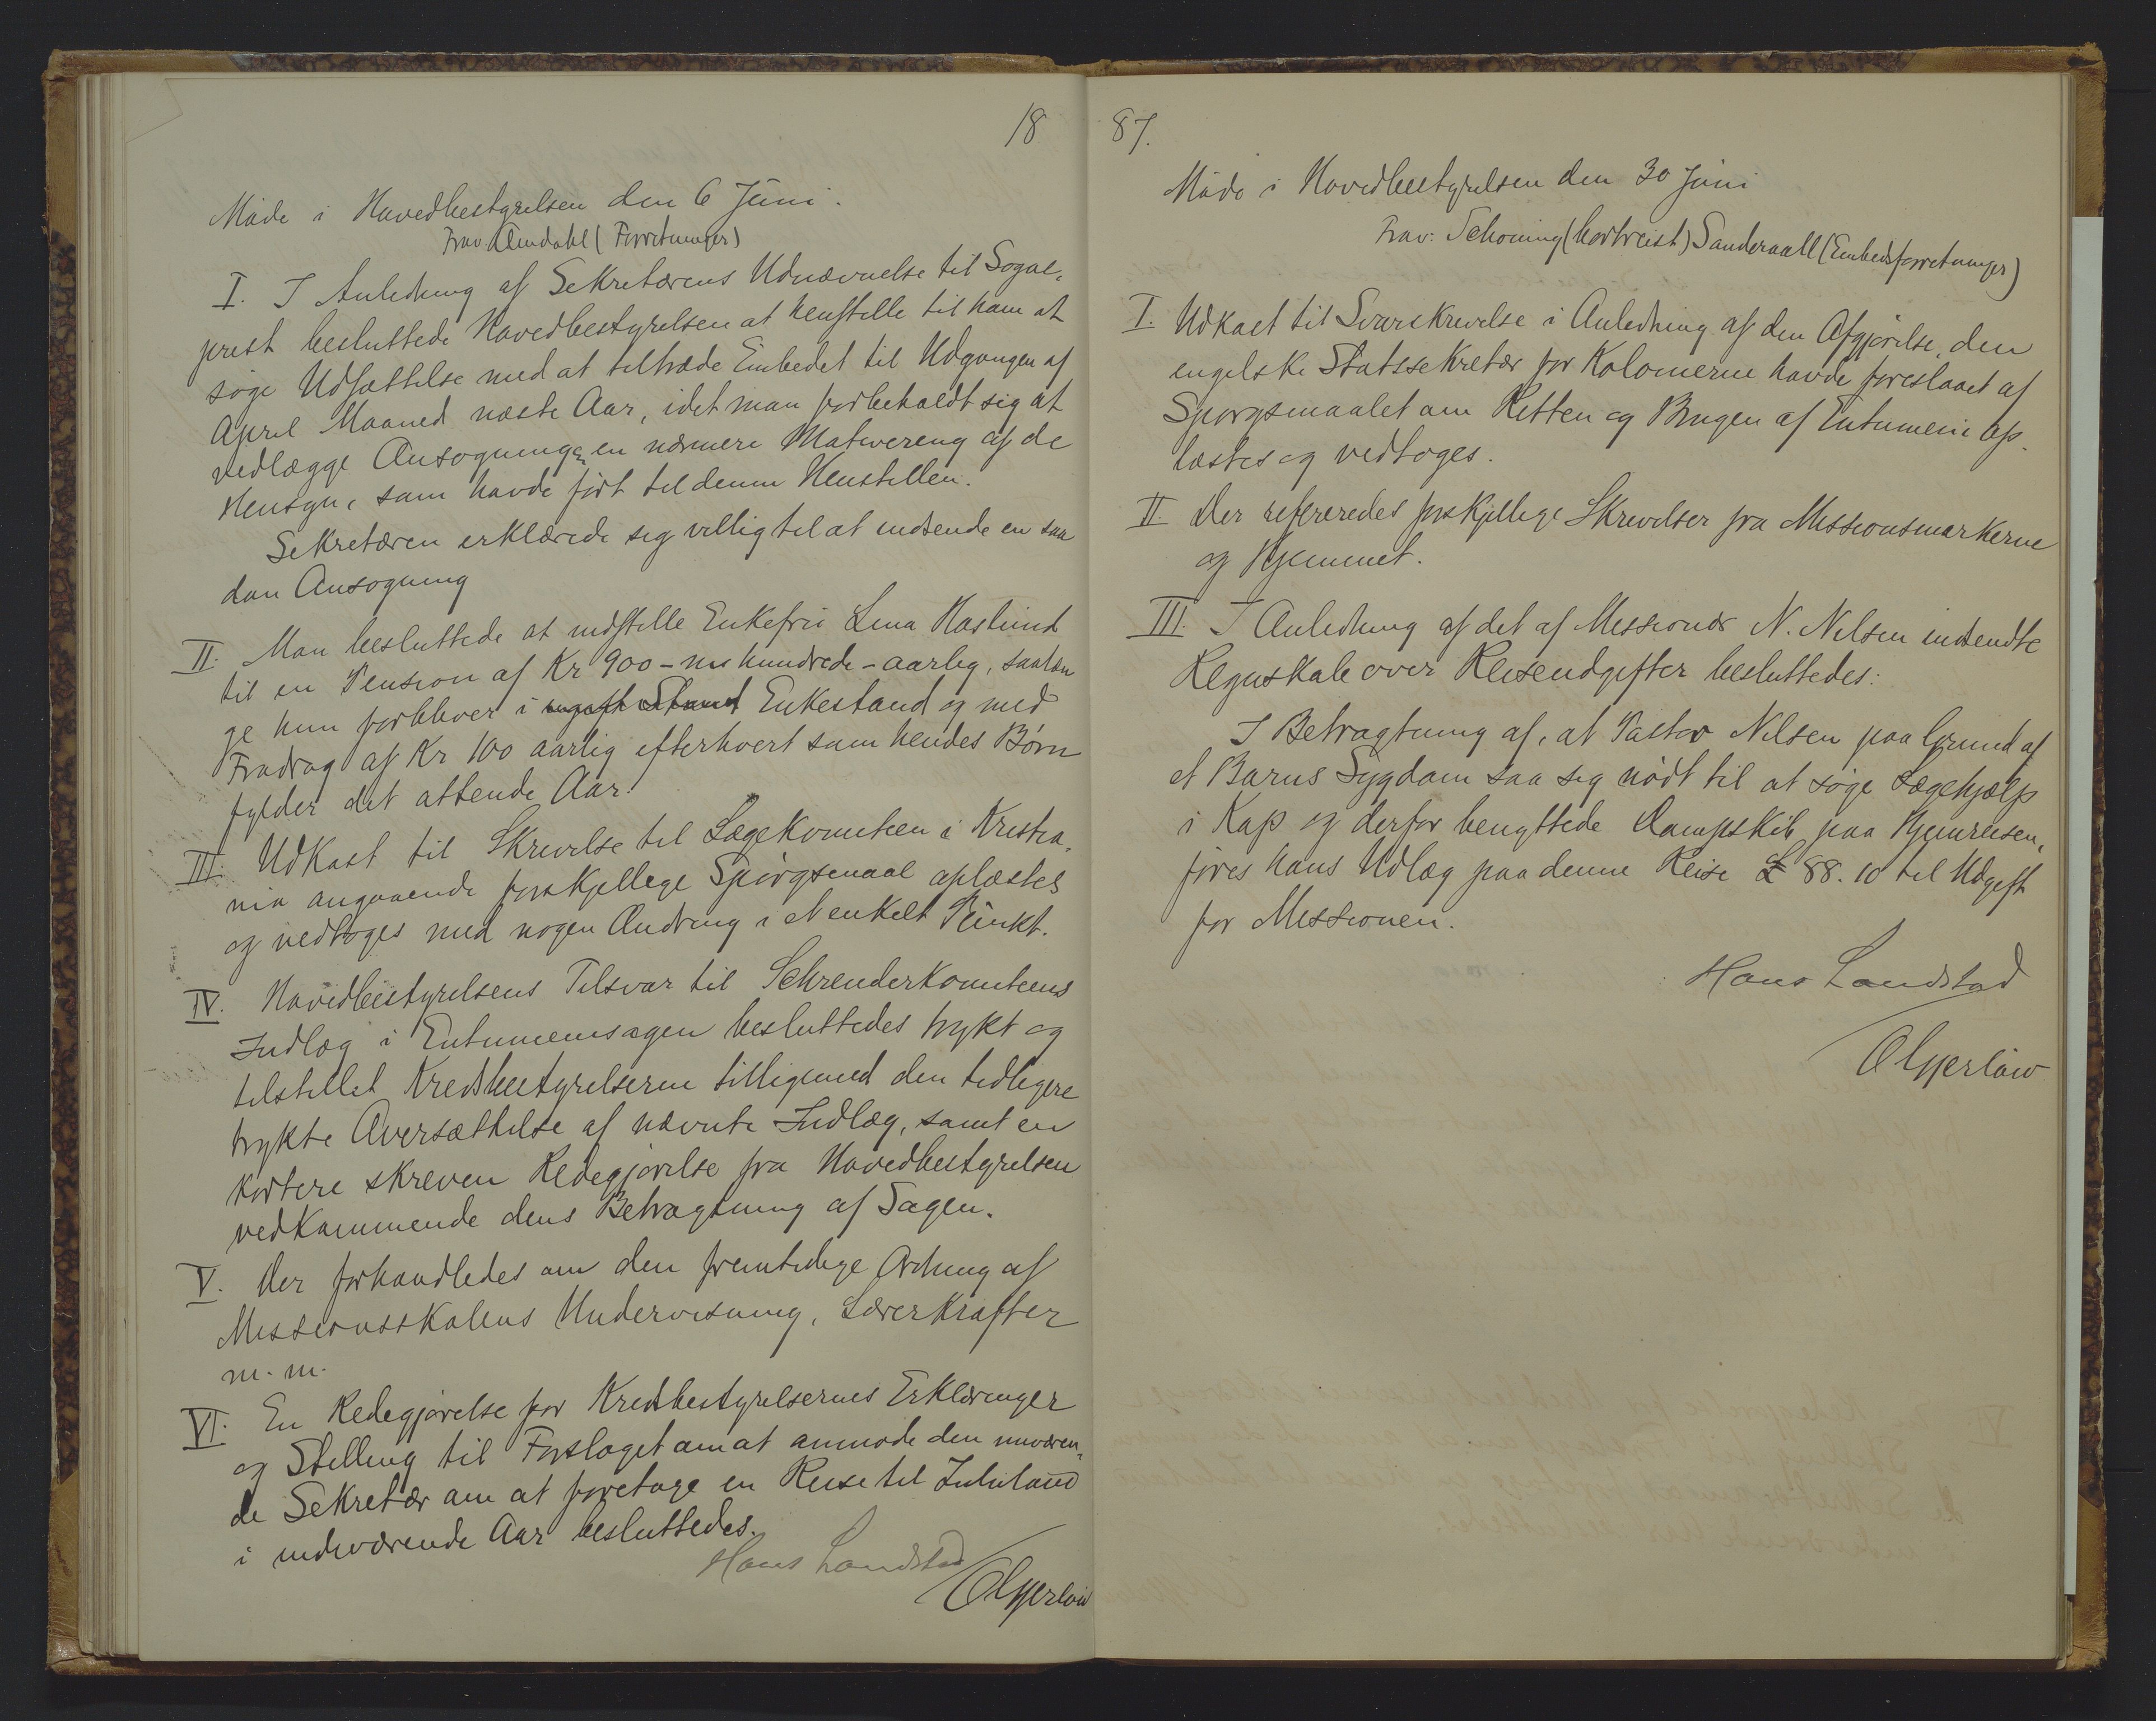 18
Møde i Hovedbestyrelsen den 6 Juni.
Frav. Amdahl (Forretninger)
I. I Anledning af Sekretærens Udnævnelse til Sogne-
prest besluttede Hovedbestyrelsen at henstille til ham at
søge Udsættelse med at tiltræde Embedet til Udgangen af
April Maaned næste Aar, idet man forbeholdt sig at
vedlægge Ansøgningen en nærmere Motivering af de
Hensyn, som havde ført til denne Henstillen.
Sekretæren erklærede sig villig til at indsende en saa
dan Ansøgning
II. Man besluttede at indstille Enkefru Lina Haslund
til en Pension af Kr 900 - ni hundrede - aarlig, saalæn
ge hun forbliver i ugift Stand Enkestand og med
Fradrag af Kr 100 aarlig efterhvert som hendes Børn
fylder det attende Aar.
III. Udkast til Skrivelse til Lægekomiteen i Kristia-
nia angaaende forskjellige Spørgsmaal oplæstes
og vedtoges med nogen Ændring i et enkelt Punkt.
IV. Hovedbestyrelsens Tilsvar til Schreuderkomiteens
Indlæg i Entumenisagen besluttedes trykt og
tilstillet Kredsbestyrelserne tilligemed den tidligere
trykte Oversættelse af nævnte Indlæg, samt en
kortere skreven Redegjørelse fra Hovedbestyrelsen
vedkommende dens Betragtning af Sagen.
V. Der forhandledes om den fremtidige Ordning af
Missionsskolens Undervisning, Lærerkræfter
m. m.
VI. En Redegjørelse for Kredsbestyrelsernes Erklæringer
og Stilling til Forslaget om at anmode den nuværen-
de Sekretær om at foretage en Reise til Zululand
i indeværende Aar besluttedes.
Hans Landstad
/ O Gjerløw
87.
Møde i Hovedbestyrelsen den 30 Juni
Frav: Schøning (bortreist) Sanderaall (Embedsforretninger)
I. Udkast til Svarskrivelse i Anledning af den Afgjørelse, den
engelske Statssekretær for Kolonierne havde foreslaaet af
Spørgsmaalet om Retten og Brugen af Entumeni op-
læstes og vedtoges.
II Der refereredes forskjellige Skrivelser fra Missionsmarkerne
og Hjemmet.
III. I Anledning af det af Missionær N. Nilsen indsendte
Regnskab over Reiseudgifter besluttedes:
I Betragtning af, at Pastor Nilsen paa Grund af
et Barns Sygdom saa sig nødt til at søge Lægehjælp
i Kap og derfor benyttede Dampskib paa Hjemreisen,
føres hans Udlæg paa denne Reise £ 88. 10 til Udgift
for Missionen.
Hans Landstad
/ O Gjerløw